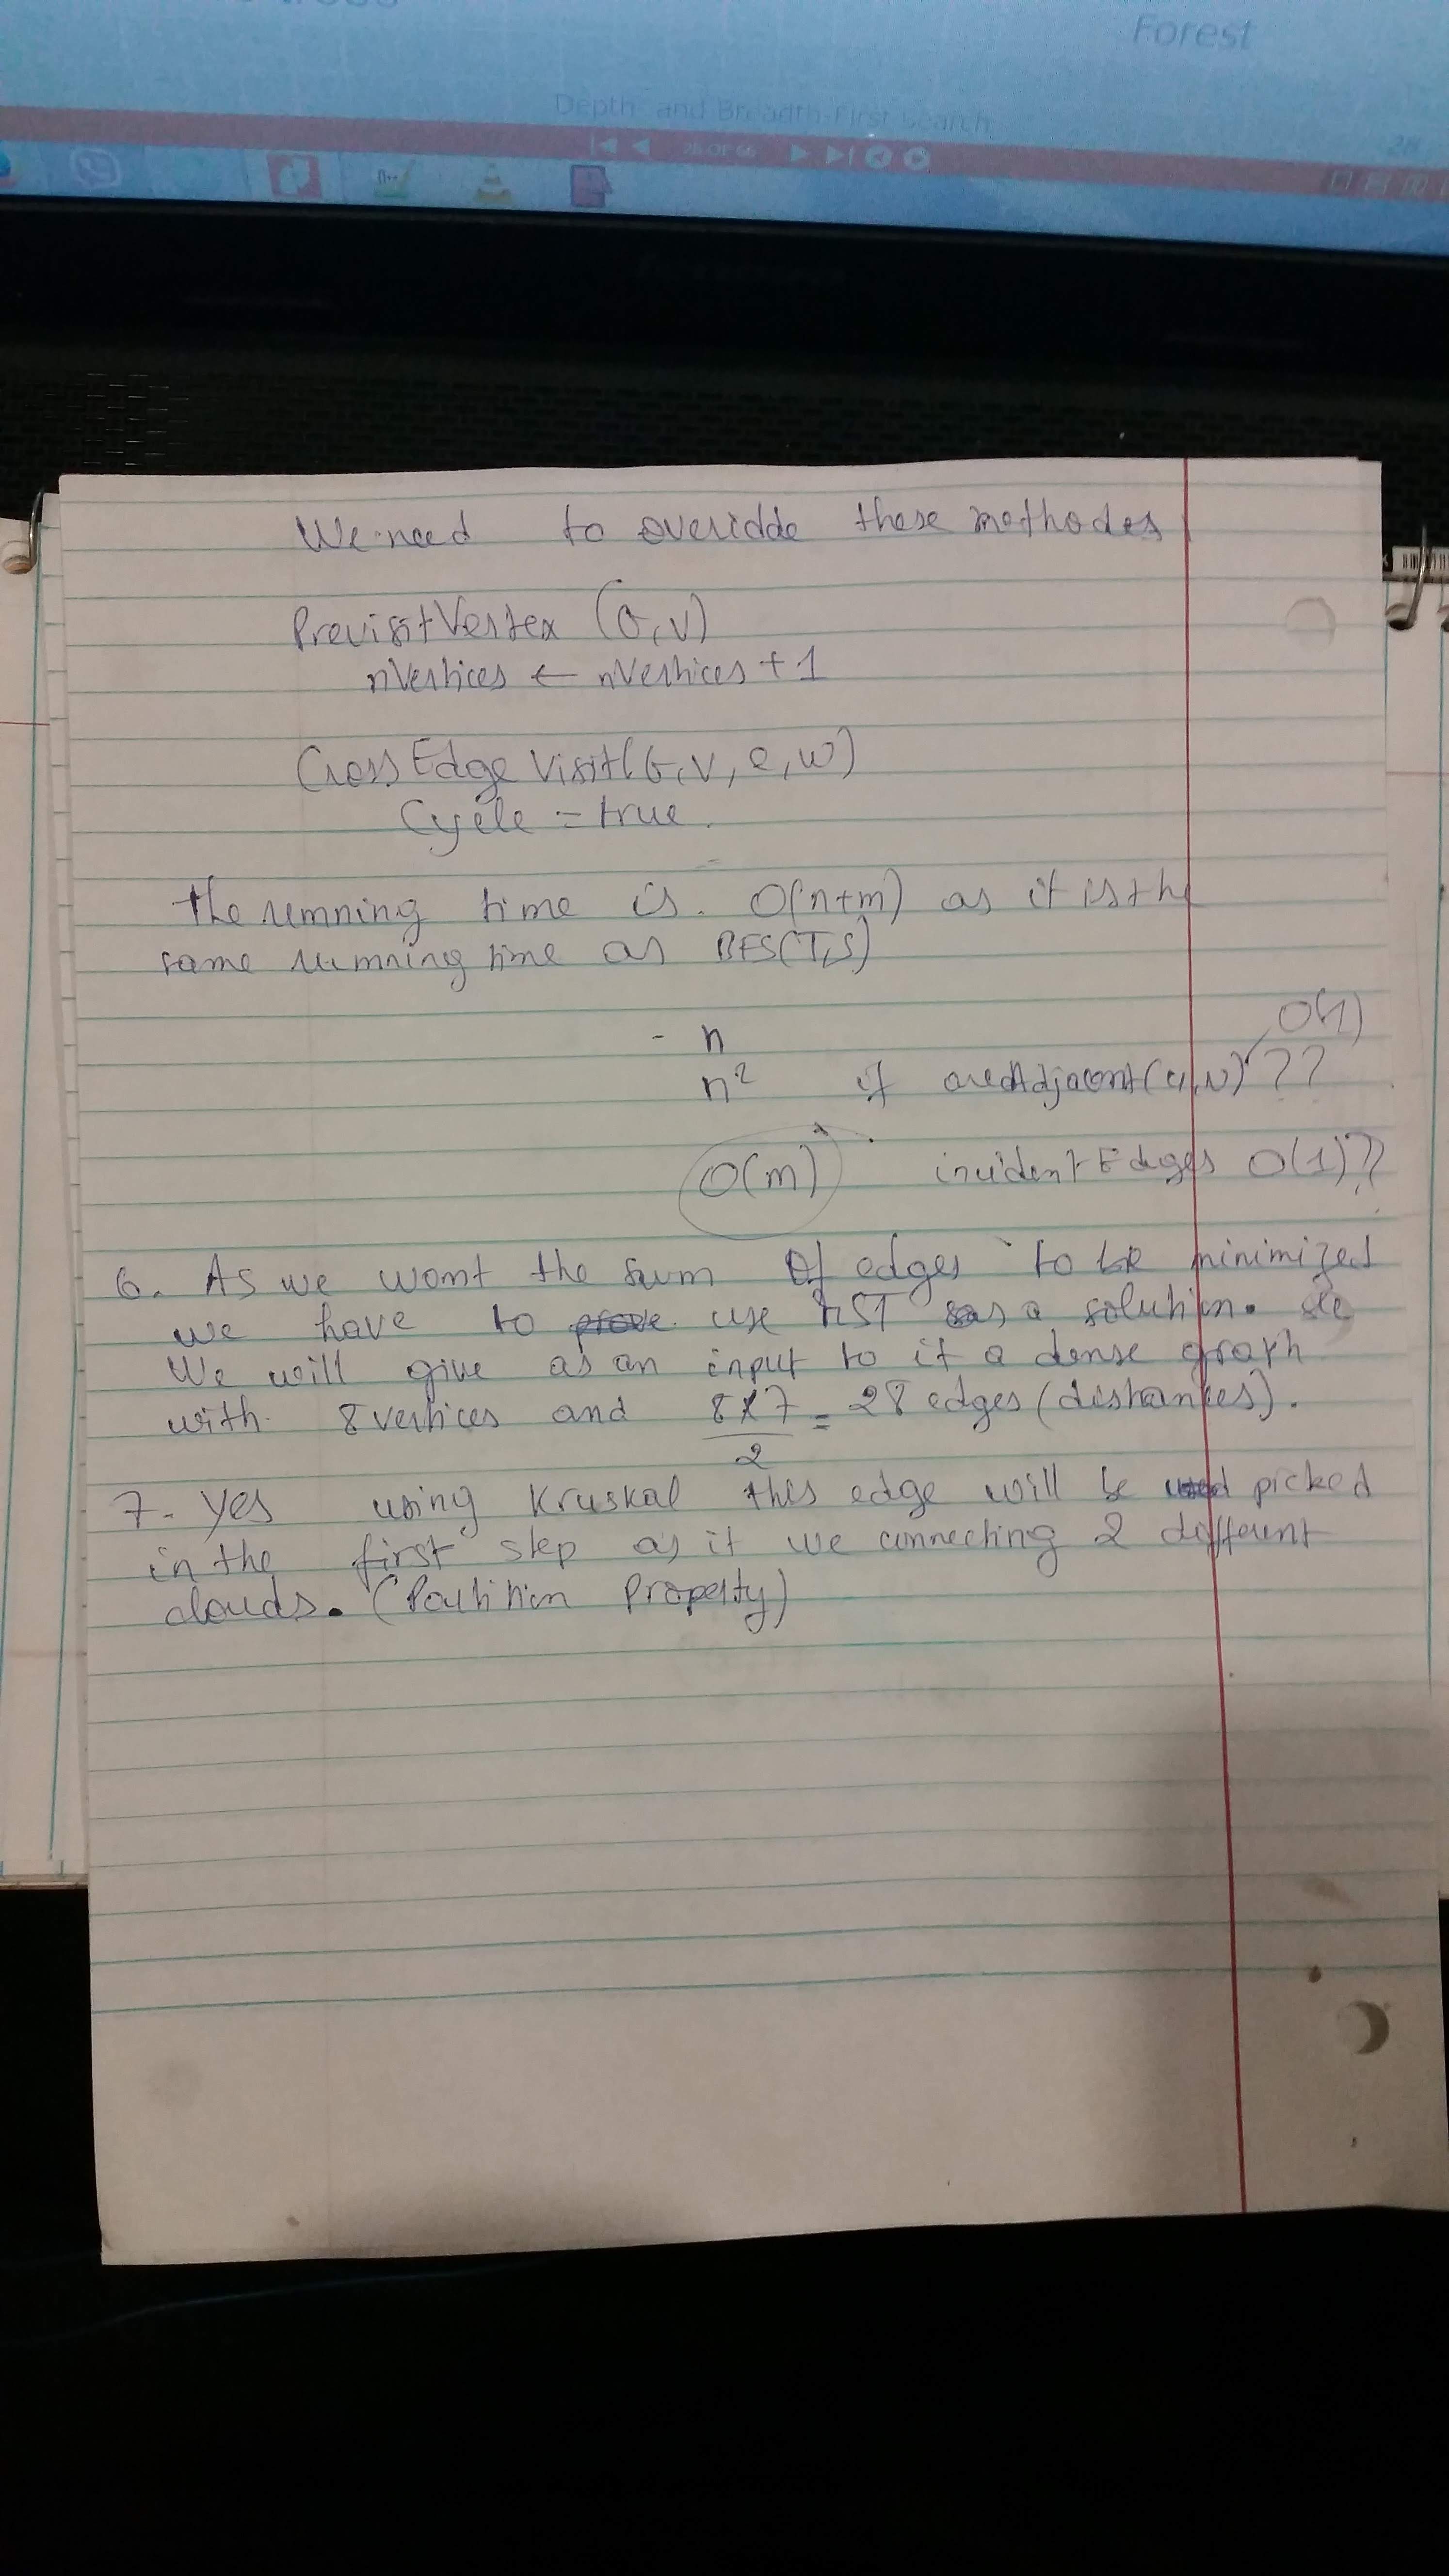 Forest
Depth- and Breadth-First Search
28
28 of 66
We need to overidde these methodes
Previsit Vertex (G,v)
nVertices ← nVertices + 1
Cross Edge Visit(G,v, e, w)
Cycle = true.
the running time is. O(n+m) as it is the
same running time as BFS(T,S)
- n
O(1)
n² if areAdjacent(u,v) ??
O(m) incident Edges O(1)??
6. As we want the sum of edges to be minimized
we have to prove use MST as a solution.
We will give as an input to it a dense graph
with 8 vertices and 8x7 = 28 edges (distances).
2
7. Yes using Kruskal this edge will be used picked
in the first step as it we connecting 2 different
clouds. (Partition Property)